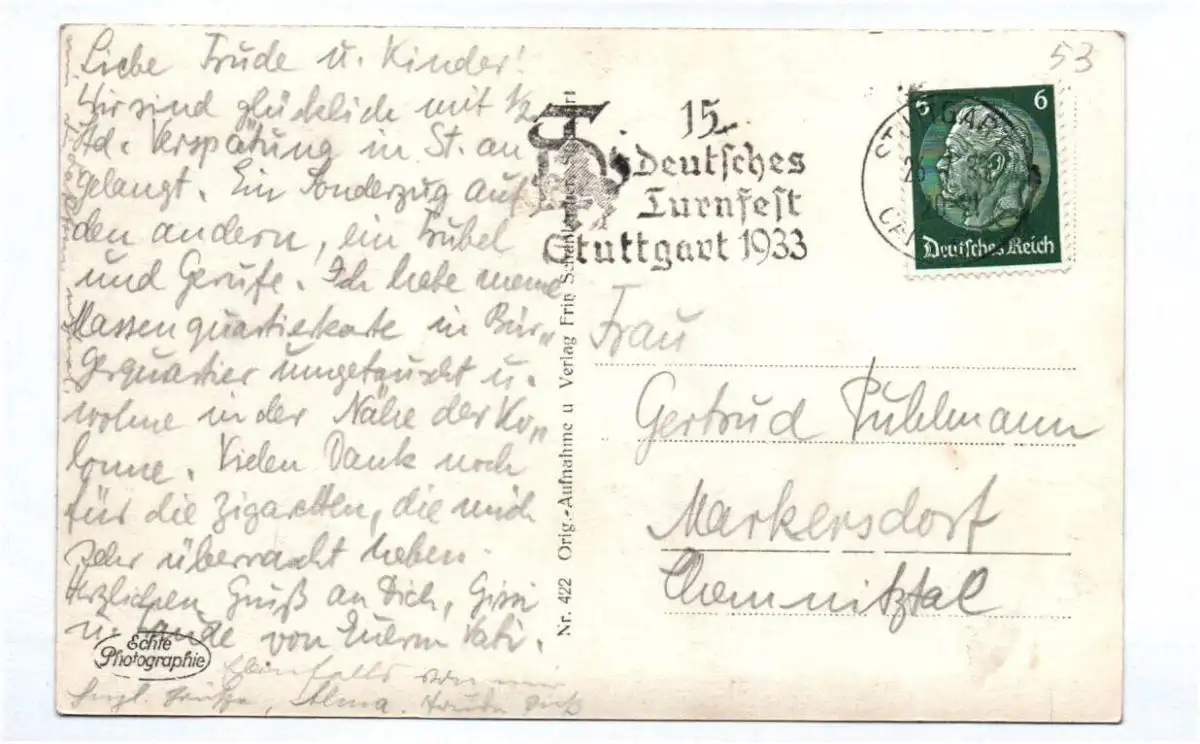 Liebe Trude u. Kinder!
Wir sind glücklich mit 1/2
Std. Verspätung in St. an
gelangt. Ein Sonderzug auf
den andern, ein Trubel
und Gerufe. Ich habe meine
Massenquartierkarte in Bür„
gerquartier umgetauscht u.
wohne in der Nähe der Ko„
lonne. Vielen Dank noch
für die Zigaretten, die mich
sehr überrascht haben.
Herzlichen Gruß an Dich,
u. von Euerm Vati.
Ebenfalls von
herzl. Grüße, Alma.
Echte
Photographie
Nr. 422 Orig.-Aufnahme u Verlag Fritz
15.
deutsches
Turnfest
Stuttgart 1933
STUTTGART
6 6
Deutsches Reich
53
Frau
Gertrud Puhlmann
Markersdorf
Chemnitztal